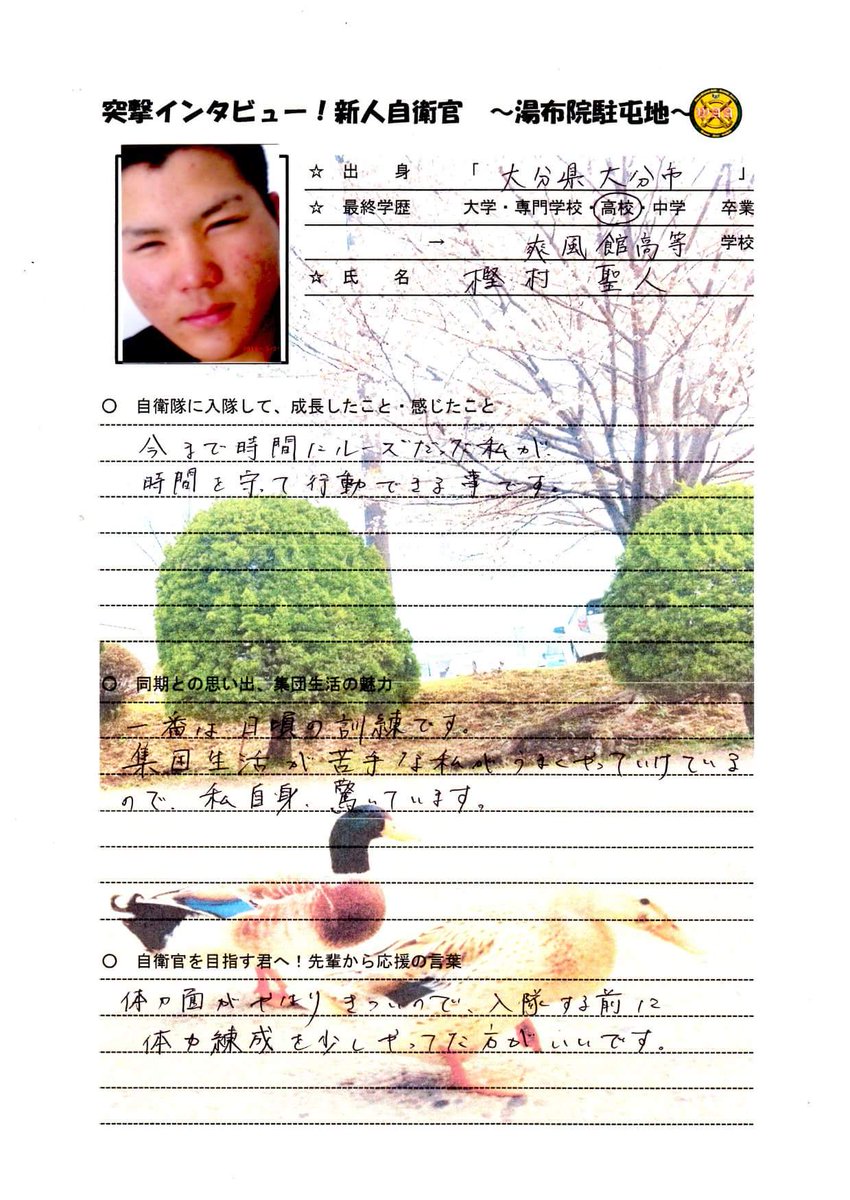 突撃インタビュー!新人自衛官 ～湯布院駐屯地～
☆ 出 身 「 大分県大分市 」
☆ 最終学歴 大学・専門学校・高校・中学 卒業
→ 爽風館高等 学校
☆ 氏 名 樫村 聖人
○ 自衛隊に入隊して、成長したこと・感じたこと
今まで時間にルーズだった私が、
時間を守って行動できる事です。
○ 同期との思い出、集団生活の魅力
一番は日頃の訓練です。
集団生活が苦手な私がうまくやっていけている
ので、私自身、驚いています。
○ 自衛官を目指す君へ!先輩から応援の言葉
体力面がやはりきついので、入隊する前に
体力練成を少しやってた方がいいです。